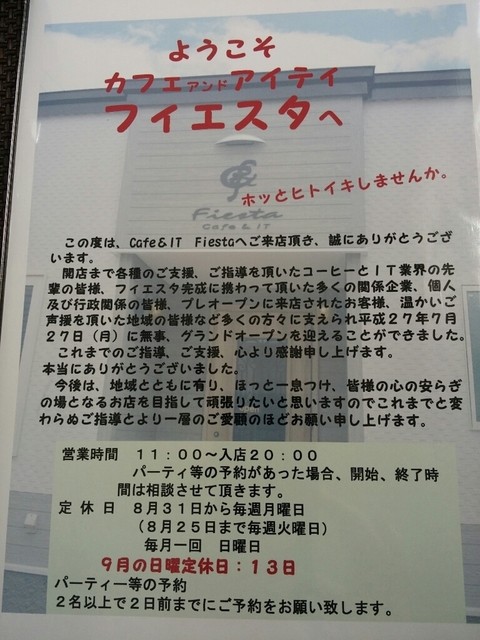 ようこそ
カフェアンドアイティ
フィエスタへ
Fiesta
Cafe & IT
ホッとヒトイキしませんか。
この度は、Cafe&IT Fiestaへご来店頂き、誠にありがとうござ
います。
開店まで各種のご支援、ご指導を頂いたコーヒーとＩＴ業界の先
輩の皆様、フィエスタ完成に携わって頂いた多くの関係企業、個人
及び行政関係の皆様、プレオープンに来店されたお客様、温かいご
声援を頂いた地域の皆様など多くの方々に支えられ平成２７年７月
２７日（月）に無事、グランドオープンを迎えることができました。
これまでのご指導、ご支援、心より感謝申し上げます。
本当にありがとうございました。
今後は、地域とともに有り、ほっと一息つけ、皆様の心の安らぎ
の場となるお店を目指して頑張りたいと思いますのでこれまでと変
わらぬご指導とより一層のご愛顧のほどお願い申し上げます。
営業時間 １１：００～入店２０：００
パーティ等の予約があった場合、開始、終了時
間は相談させて頂きます。
定休日 ８月３１日から毎週月曜日
（８月２５日まで毎週火曜日）
毎月一回 日曜日
９月の日曜定休日：１３日
パーティー等の予約
２名以上で２日前までにご予約をお願い致します。